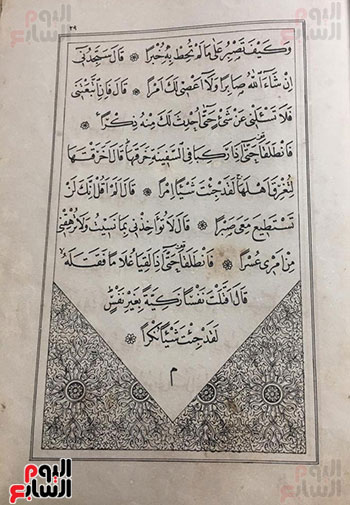 اليوم السابع
٢٩
وَكَيْفَ تَصْبِرُ عَلٰى مَا لَمْ تُحِطْ بِهِ خُبْرًا ۞ قَالَ سَتَجِدُنِى
اِنْ شَاءَ اللهُ صَابِرًا وَلَا اَعْصِى لَكَ اَمْرًا ۞ قَالَ فَاِنِ اتَّبَعْتَنِى
فَلَا تَسْئَلْنِى عَنْ شَىْءٍ حَتّٰى اُحْدِثَ لَكَ مِنْهُ ذِكْرًا ۞
فَانْطَلَقَا حَتّٰى اِذَا رَكِبَا فِى السَّفِينَةِ خَرَقَهَا قَالَ اَخَرَقْتَهَا
لِتُغْرِقَ اَهْلَهَا لَقَدْ جِئْتَ شَيْئًا اِمْرًا ۞ قَالَ اَلَمْ اَقُلْ اِنَّكَ لَنْ
تَسْتَطِيعَ مَعِىَ صَبْرًا ۞ قَالَ لَا تُؤَاخِذْنِى بِمَا نَسِيتُ وَلَا تُرْهِقْنِى
مِنْ اَمْرِى عُسْرًا ۞ فَانْطَلَقَا حَتّٰى اِذَا لَقِيَا غُلَامًا فَقَتَلَهُ
قَالَ اَقَتَلْتَ نَفْسًا زَكِيَّةً بِغَيْرِ نَفْسٍ
لَقَدْ جِئْتَ شَيْئًا نُكْرًا ۞
م
اليوم السابع
اليوم السابع